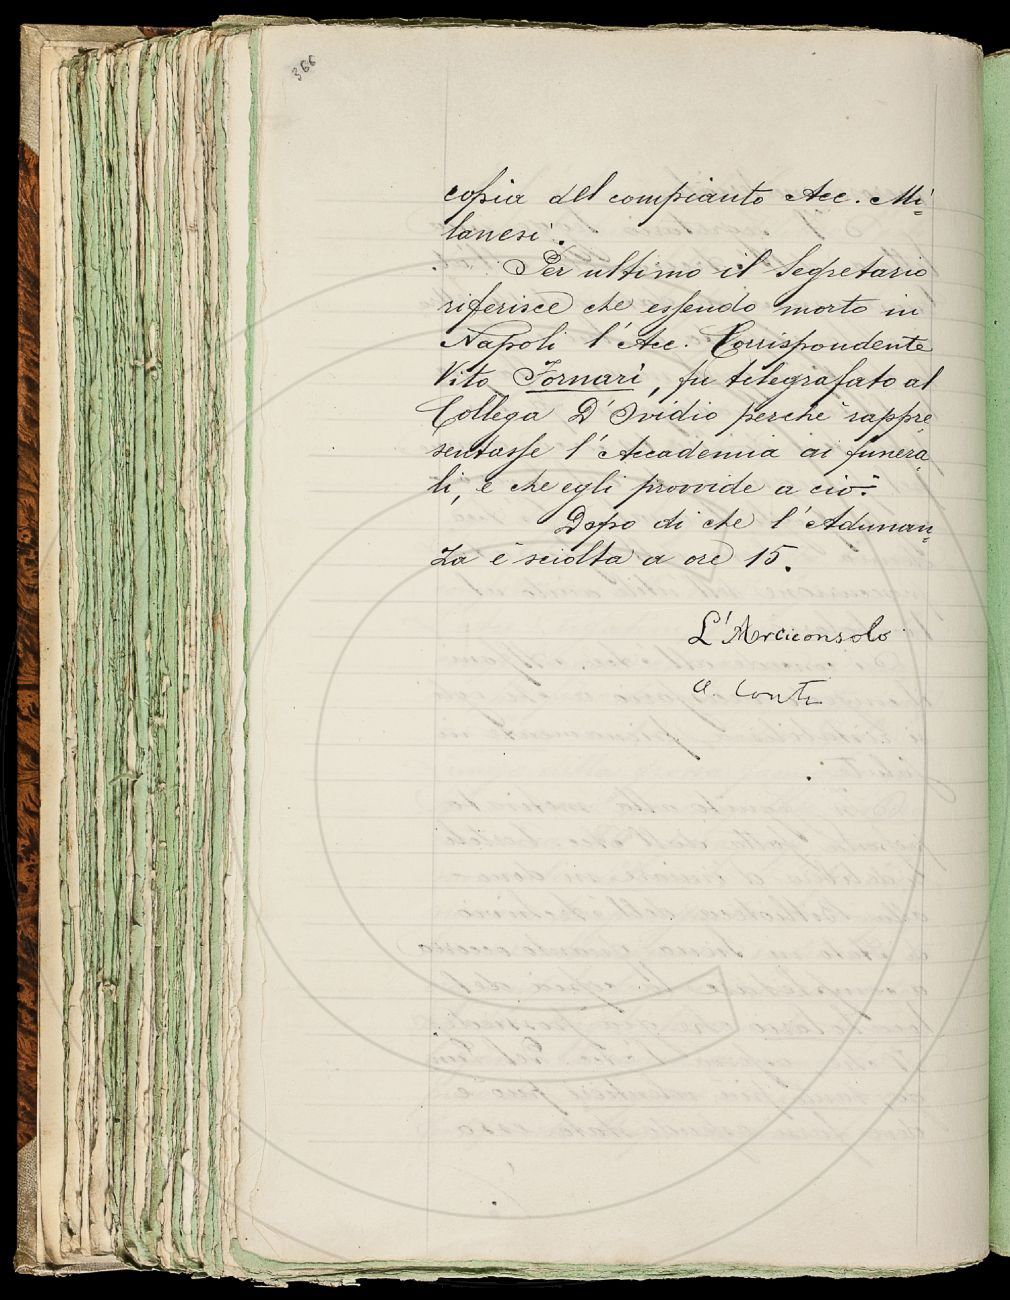 366
copia del compianto Acc. Mi=
lanesi.
Per ultimo il Segretario
riferisce che essendo morto in
Napoli l'Acc. Corrispondente
Vito Fornari, fu telegrafato al
Collega D'Ovidio perchè rappre
sentasse l'Accademia ai funera
li, e che egli provvide a ciò.
Dopo di che l'Adunan=
za è sciolta a ore 15.
L'Arciconsolo
A Conti